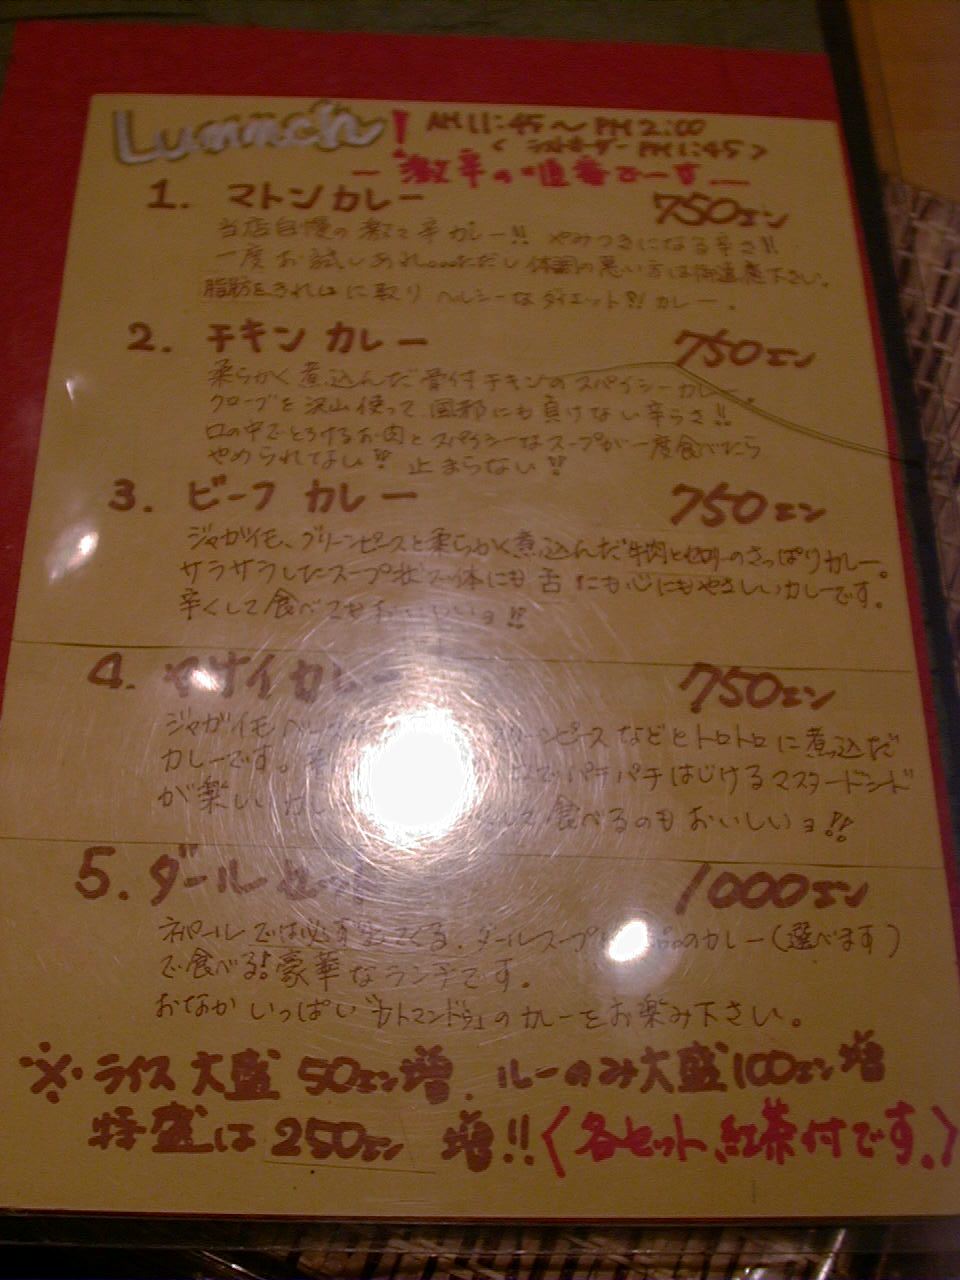 Lunnnch! AM 11:45～PM 2:00
〈ラストオーダー PM 1:45〉
ー激辛の順番でーすー
1. マトンカレー 750エン
当店自慢の激々辛カレー!! やみつきになる辛さ!!
一度お試しあれ。。。ただし体調の悪い方は御遠慮下さい。
脂肪をきれいに取り ヘルシーなダイエット!? カレー。
2. チキンカレー 750エン
柔らかく煮込んだ骨付チキンのスパイシーカレー。
クローブを沢山使って、風邪にも負けない辛らさ!!
口の中でとろけるお肉とスパイシーなスープが一度食べたら
やめられてない!! 止まらない!!
3. ビーフカレー 750エン
ジャガイモ、グリーンピースと柔らかく煮込んだ牛肉とセロリーのさっぱりカレー。
サラサラしたスープ状で体にも舌にも心にもやさしいカレーです。
辛くして食べてもおいしいョ!!
4. ヤサイカレー 750エン
ジャガイモ グリーンピースなどとトロトロに煮込だ
カレーです。 パチパチはじけるマスタードシード
が楽しいカレー 食べるのもおいしいョ!!
5. ダールセット 1000エン
ネパールでは必ず出てくる、ダールスープと 品のカレー(選べます)
で食べる!豪華なランチです。
おなかいっぱい「カトマンドゥ」のカレーをお楽み下さい。
※ライス大盛50エン増、ルーのみ大盛100エン増
特盛は250エン増!!〈各セット、紅茶付です。〉